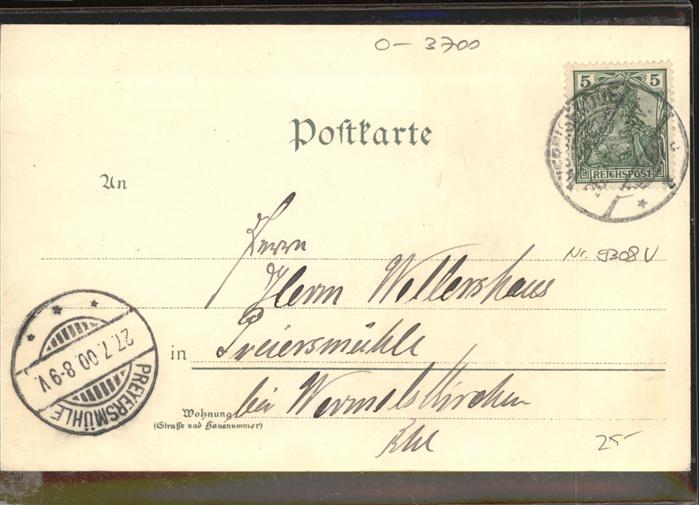 O-3700
5 5
REICHSPOST
Postkarte
An
Herrn
Herm Wellershaus
Nr. 9308 V
in Preiersmühle
Wohnung
(Straße und Hausnummer)
bei Wermelskirchen
25-
PREYERSMÜHLE
27.7.00.8-9.V.